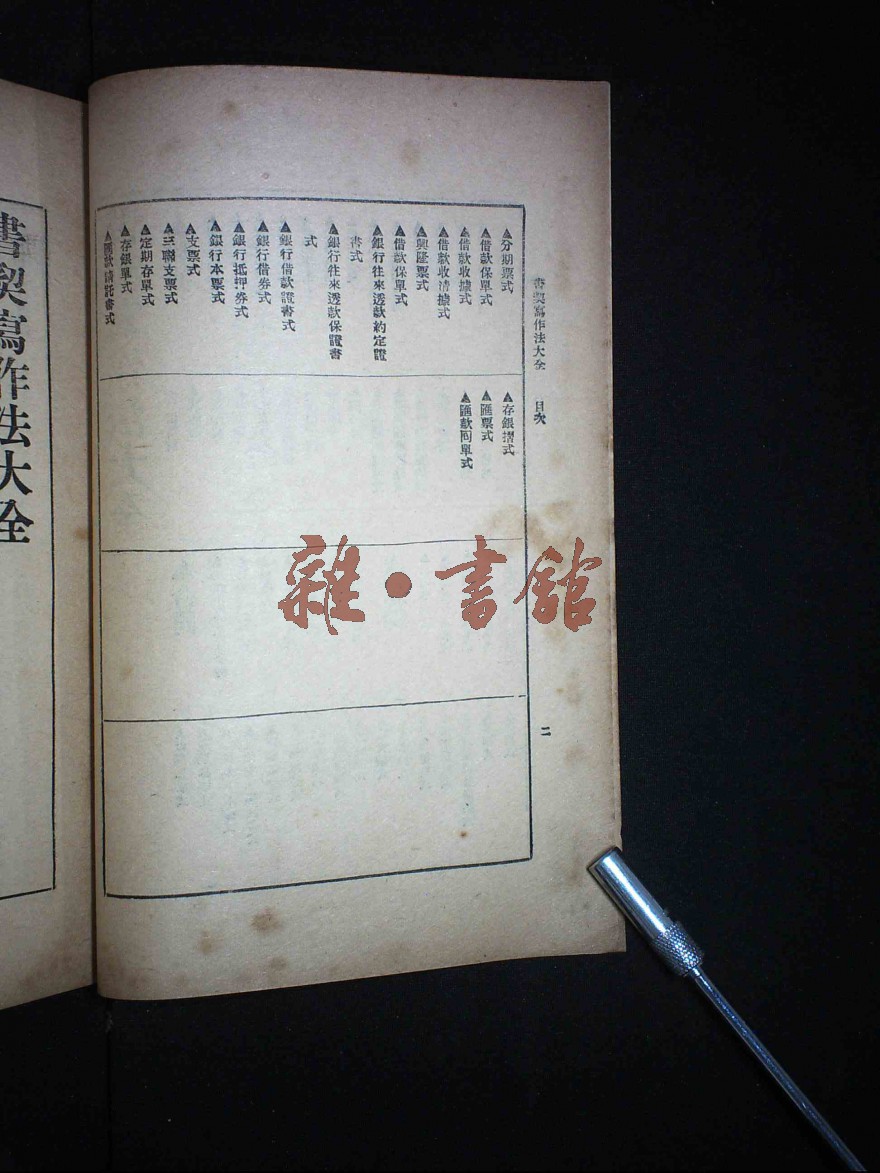 書契寫作法大全　目次
二
▲分期票式
▲借款保單式
▲借款收據式
▲借款收清據式
▲興隆票式
▲借款保單式
▲銀行往來透款約定證
書式
▲銀行往來透款保證書
式
▲銀行借款證書式
▲銀行借券式
▲銀行抵押券式
▲銀行本票式
▲支票式
▲三聯支票式
▲定期存單式
▲存銀單式
▲匯款請託書式
▲存銀摺式
▲匯票式
▲匯款回單式
書契寫作法大全
雜·書館